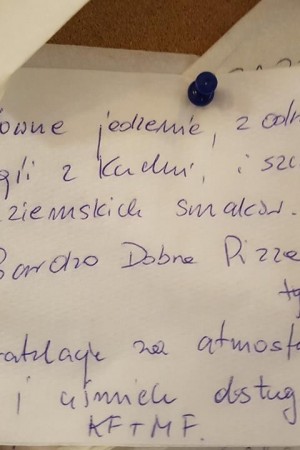 owne jedzenie, z od
z kuchni, i sz
ziemskich smaków.
Bardzo Dobra Pizza
atulacje za atmosf
i uśmiech obsług
KF+MF.